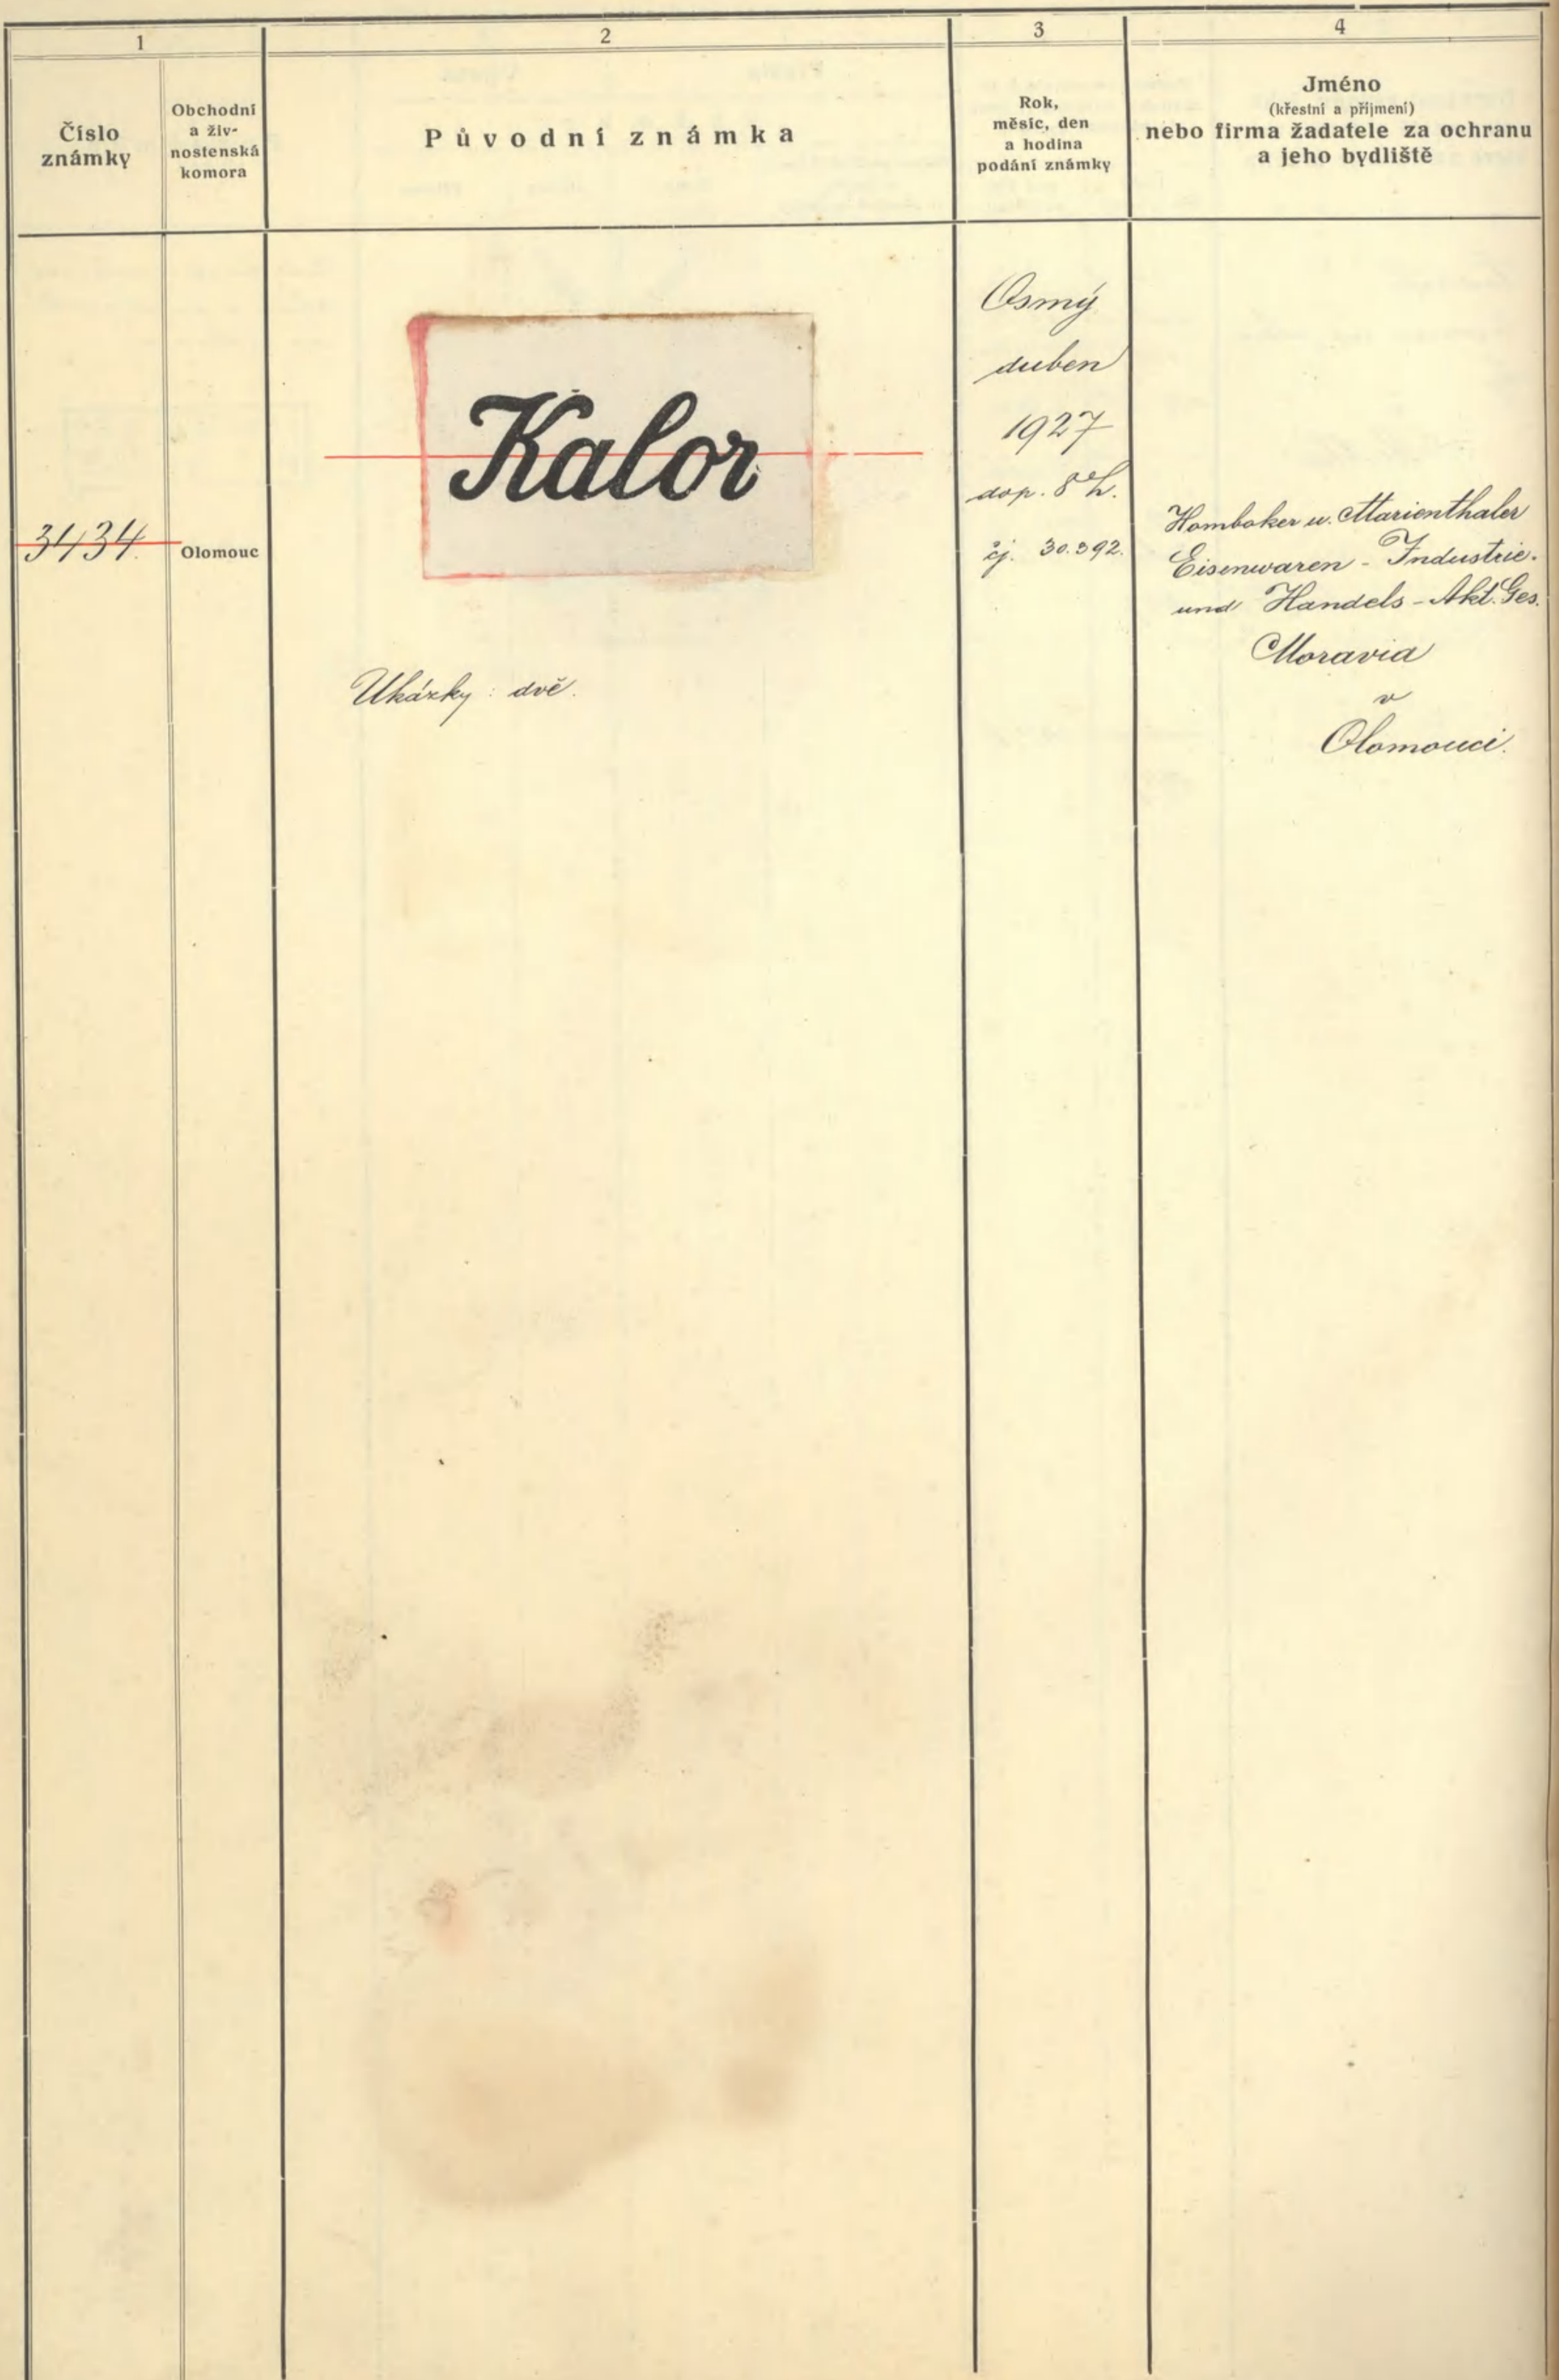 1
2
3
4
Číslo
známky
Obchodní
a živ-
nostenská
komora
Původní známka
Rok,
měsíc, den
a hodina
podání známky
Jméno
(křestní a příjmení)
nebo firma žadatele za ochranu
a jeho bydliště
3434.
Olomouc
Kalor
Ukázky: dvě.
Osmý
duben
1927
dop. 8 h.
čj. 30.392.
Homboker u. Marienthaler
Eisenwaren - Industrie-
und Handels - Akt. Ges.
Moravia
v
Olomouci.